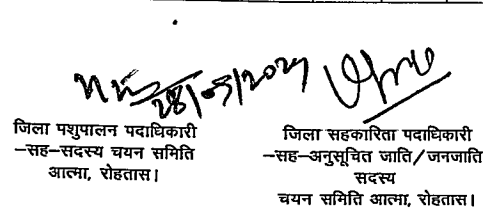 जिला पशुपालन पदाधिकारी
–सह–सदस्य चयन समिति
आत्मा, रोहतास।
जिला सहकारिता पदाधिकारी
–सह–अनुसूचित जाति/जनजाति
सदस्य
चयन समिति आत्मा, रोहतास।